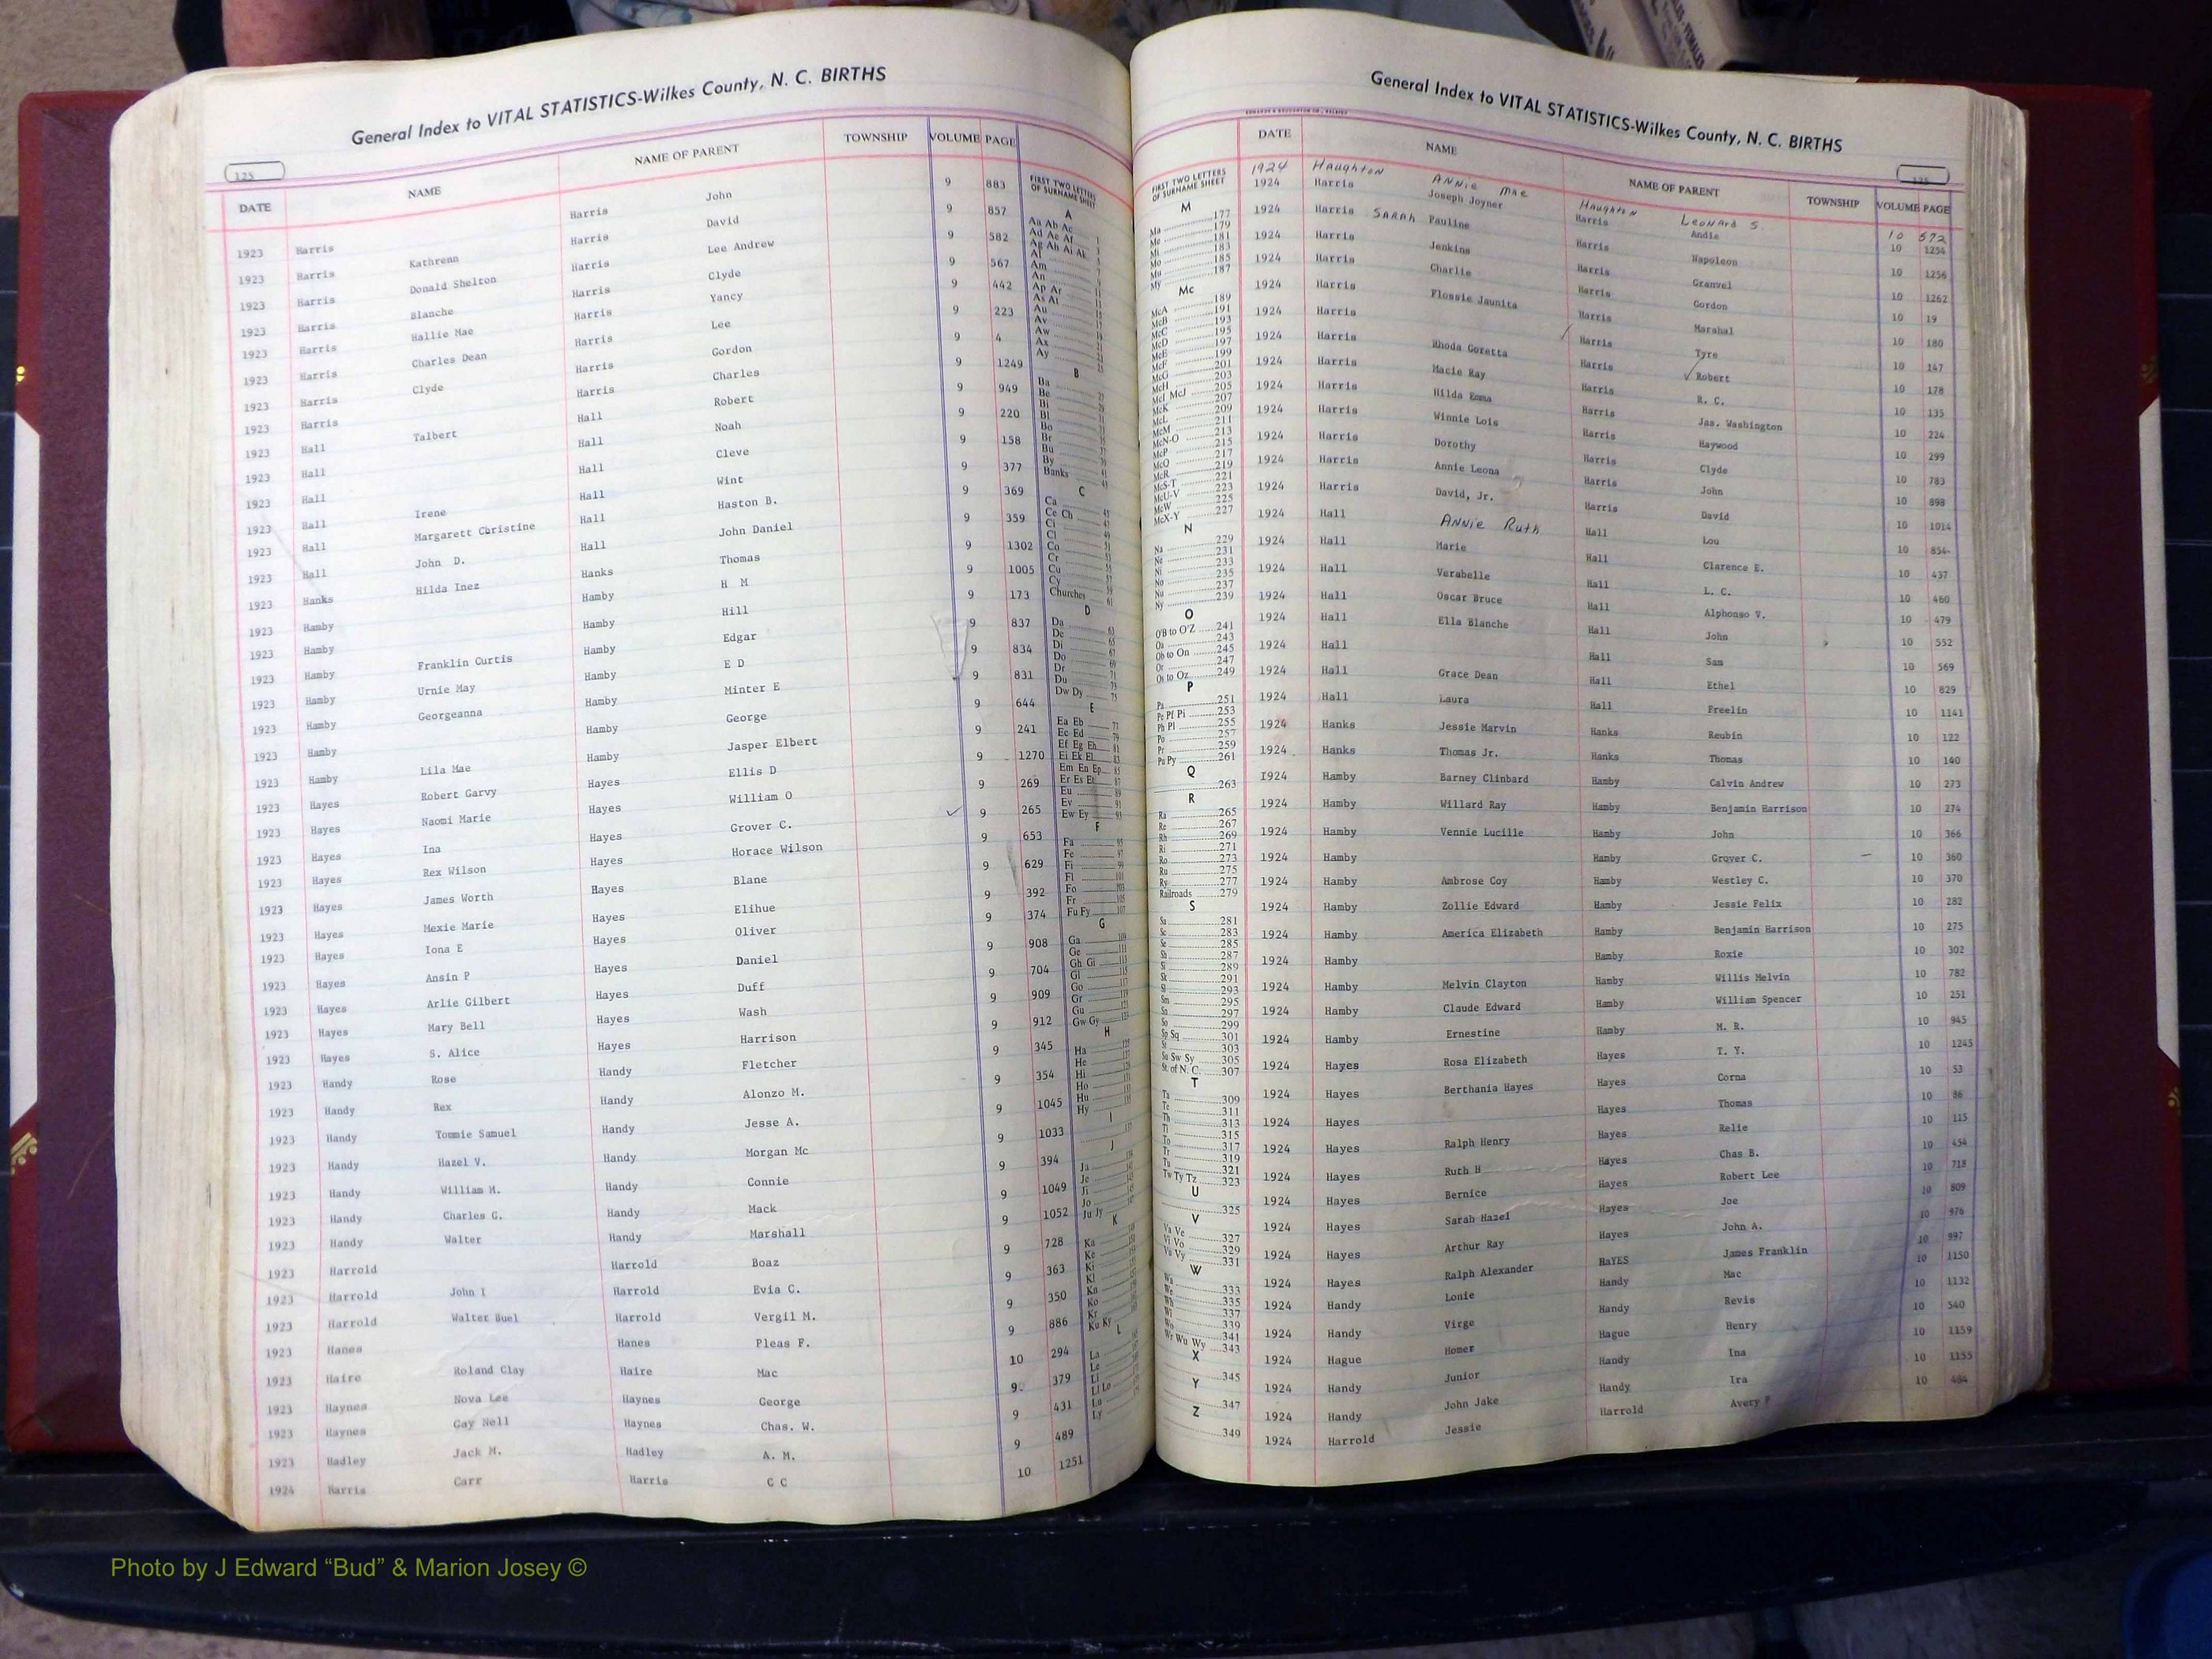 General Index to VITAL STATISTICS-Wilkes County, N. C. BIRTHS
125
DATE NAME NAME OF PARENT TOWNSHIP VOLUME PAGE
1923 Harris Harris John 9 883
1923 Harris Kathrenn Harris David 9 857
1923 Harris Donald Shelton Harris Lee Andrew 9 582
1923 Harris Blanche Harris Clyde 9 567
1923 Harris Hallie Mae Harris Yancy 9 442
1923 Harris Charles Dean Harris Lee 9 223
1923 Harris Clyde Harris Gordon 9 4
1923 Harris Harris Charles 9 1249
1923 Hall Talbert Hall Robert 9 949
1923 Hall Hall Noah 9 220
1923 Hall Hall Cleve 9 158
1923 Hall Irene Hall Wint 9 377
1923 Hall Margarett Christine Hall Haston B. 9 369
1923 Hall John D. Hall John Daniel 9 359
1923 Hanks Hilda Inez Hanks Thomas 9 1302
1923 Hamby Hamby H M 9 1005
1923 Hamby Hamby Hill 9 173
1923 Hamby Franklin Curtis Hamby Edgar 9 837
1923 Hamby Urnie May Hamby E D 9 834
1923 Hamby Georgeanna Hamby Minter E 9 831
1923 Hamby Hamby George 9 644
1923 Hamby Lila Mae Hamby Jasper Elbert 9 241
1923 Hayes Robert Garvy Hayes Ellis D 9 1270
1923 Hayes Naomi Marie Hayes William O 9 269
1923 Hayes Ina Hayes Grover C. 9 265
1923 Hayes Rex Wilson Hayes Horace Wilson 9 653
1923 Hayes James Worth Hayes Blane 9 629
1923 Hayes Mexie Marie Hayes Elihue 9 392
1923 Hayes Iona E Hayes Oliver 9 374
1923 Hayes Ansin P Hayes Daniel 9 908
1923 Hayes Arlie Gilbert Hayes Duff 9 704
1923 Hayes Mary Bell Hayes Wash 9 909
1923 Hayes S. Alice Hayes Harrison 9 912
1923 Handy Rose Handy Fletcher 9 345
1923 Handy Rex Handy Alonzo M. 9 354
1923 Handy Tommie Samuel Handy Jesse A. 9 1045
1923 Handy Hazel V. Handy Morgan Mc 9 1033
1923 Handy William M. Handy Connie 9 394
1923 Handy Charles G. Handy Mack 9 1049
1923 Handy Walter Handy Marshall 9 1052
1923 Harrold Harrold Boaz 9 728
1923 Harrold John I Harrold Evia C. 9 363
1923 Harrold Walter Buel Harrold Vergil M. 9 350
1923 Hanes Hanes Pleas F. 9 886
1923 Haire Roland Clay Haire Mac 10 294
1923 Haynes Nova Lee Haynes George 9. 379
1923 Haynes Gay Nell Haynes Chas. W. 9 431
1923 Hadley Jack M. Hadley A. M. 9 489
1924 Harris Carr Harris C C 10 1251
FIRST TWO LETTERS OF SURNAME SHEET
A
Aa Ab Ac
Ad Ae Af
Ag Ah Ai Ak
Al
Am
An
Ap Ar
As At
Au
Av
Aw
Ax
Ay
B
Ba
Be
Bi
Bl
Bo
Br
Bu
By
Banks
C
Ca
Ce Ch
Ci
Cl
Co
Cr
Cu
Cy
Churches
D
Da
De
Di
Do
Dr
Du
Dw Dy
E
Ea Eb
Ec Ed
Ef Eg Eh
Ei Ek El
Em En Ep
Er Es Et
Eu
Ev
Ew Ey
F
Fa
Fe
Fi
Fl
Fo
Fr
Fu Fy
G
Ga
Ge
Gh Gi
Gl
Go
Gr
Gu
Gw Gy
H
Ha
He
Hi
Ho
Hu
Hy
I
J
Ja
Je
Ji
Jo
Ju Jy
K
Ka
Ke
Ki
Kl
Kn
Ko
Kr
Ku Ky
L
La
Le
Li
Ll Lo
Lu
Ly
General Index to VITAL STATISTICS-Wilkes County, N. C. BIRTHS
FIRST TWO LETTERS OF SURNAME SHEET
M
Ma 177
Me 179
Mi 181
Mo 183
Mu 185
My 187
Mc
McA 189
McB 191
McC 193
McD 195
McE 197
McF 199
McG 201
McH 203
McI McJ 205
McK 207
McL 209
McM 211
McN-O 213
McP 215
McQ 217
McR 219
McS-T 221
McU-V 223
McW 225
McX-Y 227
N
Na 229
Ne 231
Ni 233
No 235
Nu 237
Ny 239
O
O'B to O'Z 241
Oa 243
Ob to On 245
Or 247
Os to Oz 249
P
Pa 251
Pe Pf Pi 253
Ph Pl 255
Po 257
Pr 259
Pu Py 261
Q
263
R
Ra 265
Re 267
Rh 269
Ri 271
Ro 273
Ru 275
Ry 277
Railroads 279
S
Sa 281
Sc 283
Se 285
Sh 287
Si 289
Sk 291
Sl 293
Sm 295
Sn 297
So 299
Sp Sq 301
St 303
Su Sw Sy 305
St. of N. C. 307
T
Ta 309
Te 311
Th 313
Ti 315
To 317
Tr 319
Tu 321
Tw Ty Tz 323
U
325
V
Va Ve 327
Vi Vo 329
Vu Vy 331
W
Wa 333
We 335
Wh 337
Wi 339
Wo 341
Wr Wu Wy 343
X
345
Y
347
Z
349
DATE NAME NAME OF PARENT TOWNSHIP VOLUME PAGE
1924 Haughton Annie Mae Haughton Leonard S. 10 572
1924 Harris Joseph Joyner Harris Andie 10 1254
1924 Harris Sarah Pauline Harris Napoleon 10 1256
1924 Harris Jenkins Harris Granvel 10 1262
1924 Harris Charlie Harris Gordon 10 19
1924 Harris Flossie Jaunita Harris Marshal 10 180
1924 Harris Harris Tyre 10 147
1924 Harris Rhoda Goretta Harris Robert 10 178
1924 Harris Macie Ray Harris R. C. 10 135
1924 Harris Hilda Emma Harris Jas. Washington 10 224
1924 Harris Winnie Lois Harris Haywood 10 299
1924 Harris Dorothy Harris Clyde 10 783
1924 Harris Annie Leona Harris John 10 898
1924 Harris David, Jr. Harris David 10 1014
1924 Hall Annie Ruth Hall Lou 10 854
1924 Hall Marie Hall Clarence E. 10 437
1924 Hall Verabelle Hall L. C. 10 460
1924 Hall Oscar Bruce Hall Alphonso V. 10 479
1924 Hall Ella Blanche Hall John 10 552
1924 Hall Hall Sam 10 569
1924 Hall Grace Dean Hall Ethel 10 829
1924 Hall Laura Hall Freelin 10 1141
1924 Hanks Jessie Marvin Hanks Reubin 10 122
1924 Hanks Thomas Jr. Hanks Thomas 10 140
1924 Hamby Barney Clinbard Hamby Calvin Andrew 10 273
1924 Hamby Willard Ray Hamby Benjamin Harrison 10 274
1924 Hamby Vennie Lucille Hamby John 10 366
1924 Hamby Hamby Grover C. 10 360
1924 Hamby Ambrose Coy Hamby Westley C. 10 370
1924 Hamby Zollie Edward Hamby Jessie Felix 10 282
1924 Hamby America Elizabeth Hamby Benjamin Harrison 10 275
1924 Hamby Hamby Roxie 10 302
1924 Hamby Melvin Clayton Hamby Willis Melvin 10 782
1924 Hamby Claude Edward Hamby William Spencer 10 251
1924 Hamby Ernestine Hamby M. R. 10 945
1924 Hayes Rosa Elizabeth Hayes T. Y. 10 1245
1924 Hayes Berthania Hayes Hayes Corna 10 53
1924 Hayes Hayes Thomas 10 86
1924 Hayes Ralph Henry Hayes Relie 10 115
1924 Hayes Ruth H Hayes Chas B. 10 454
1924 Hayes Bernice Hayes Robert Lee 10 718
1924 Hayes Sarah Hazel Hayes Joe 10 809
1924 Hayes Arthur Ray Hayes John A. 10 976
1924 Hayes Ralph Alexander HaYES James Franklin 10 997
1924 Handy Lonie Handy Mac 10 1150
1924 Handy Virge Handy Revis 10 1132
1924 Hague Homer Hague Henry 10 540
1924 Handy Junior Handy Ina 10 1159
1924 Handy John Jake Handy Ira 10 1155
1924 Harrold Jessie Harrold Avery 10 484
Photo by J Edward “Bud” & Marion Josey ©